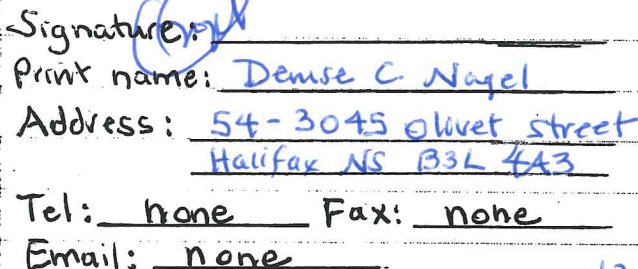 Signature:
Print name: Denise C. Nagel
Address: 54-3045 Olivet street
Halifax NS B3L 4A3
Tel: none Fax: none
Email: none